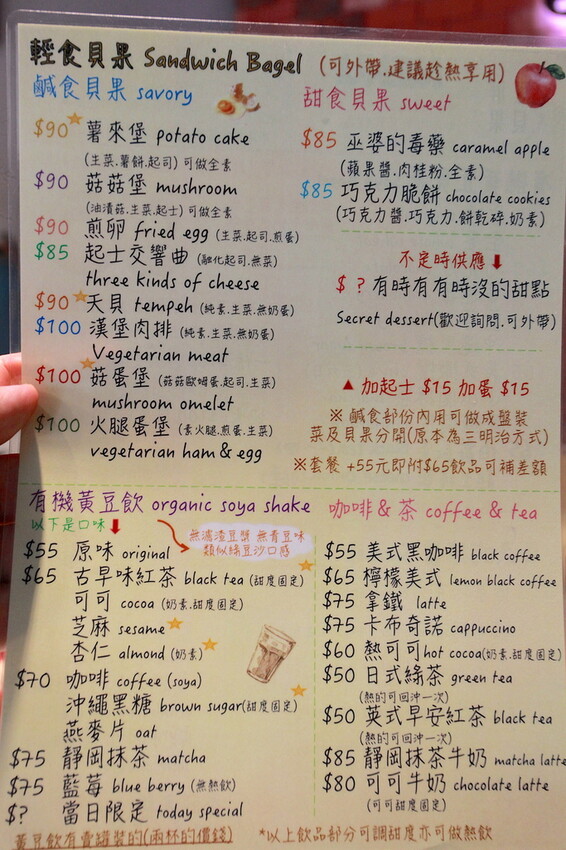 輕食貝果 Sandwich Bagel (可外帶.建議趁熱享用)
鹹食貝果 savory
$90 薯來堡 potato cake
(生菜.薯餅.起司) 可做全素
$90 菇菇堡 mushroom
(油漬菇.生菜.起士) 可做全素
$90 煎卵 fried egg (生菜.起司.煎蛋)
$85 起士交響曲 (融化起司.無菜)
three kinds of cheese
$90 天貝 tempeh (純素.生菜.無奶蛋)
$100 漢堡肉排 (純素.生菜.無奶蛋)
Vegetarian meat
$100 菇蛋堡 (菇菇歐姆蛋.起司.生菜)
mushroom omelet
$100 火腿蛋堡 (素火腿.煎蛋.生菜)
vegetarian ham & egg
甜食貝果 sweet
$85 巫婆的毒藥 caramel apple
(蘋果醬.肉桂粉.全素)
$85 巧克力脆餅 chocolate cookies
(巧克力醬.巧克力.餅乾碎.奶素)
不定時供應⬇
$ ? 有時有有時沒的甜點
Secret dessert(歡迎詢問.可外帶)
▲ 加起士 $15 加蛋 $15
※ 鹹食部份內用可做成盤裝
菜及貝果分開(原本為三明治方式)
※套餐 +55元即附$65飲品可補差額
有機黃豆飲 organic soya shake
以下是口味⬇
無濾渣豆漿 無青豆味
類似綠豆沙口感
$55 原味 original
$65 古早味紅茶 black tea (甜度固定)
可可 cocoa (奶素.甜度固定)
芝麻 sesame
杏仁 almond (奶素)
$70 咖啡 coffee (soya)
沖繩黑糖 brown sugar(甜度固定)
燕麥片 oat
$75 靜岡抹茶 matcha
$75 藍莓 blue berry (無熱飲)
$? 當日限定 today special
黃豆飲有賣罐裝的(兩杯的價錢)
咖啡 & 茶 coffee & tea
$55 美式黑咖啡 black coffee
$65 檸檬美式 lemon black coffee
$75 拿鐵 latte
$75 卡布奇諾 cappuccino
$60 熱可可 hot cocoa(奶素.甜度固定)
$50 日式綠茶 green tea
(熱的可回沖一次)
$50 英式早安紅茶 black tea
(熱的可回沖一次)
$85 靜岡抹茶牛奶 matcha latte
$80 可可牛奶 chocolate latte
(可可甜度固定)
*以上飲品部分可調甜度亦可做熱飲